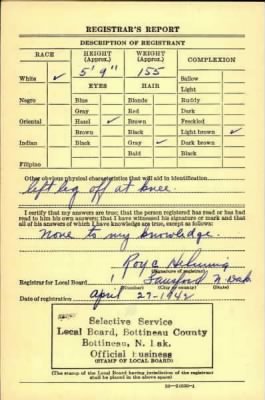 REGISTRAR'S REPORT
DESCRIPTION OF REGISTRANT
RACE
HEIGHT (Approx.)
WEIGHT (Approx.)
COMPLEXION
White ✓
5' 9"
155
Sallow
Light
EYES
HAIR
Negro
Blue
Blonde
Ruddy
Gray
Red
Dark
Oriental
Hazel ✓
Brown
Freckled
Brown
Black
Light brown ✓
Indian
Black
Gray ✓
Dark brown
Bald
Black
Filipino
Other obvious physical characteristics that will aid in identification
left leg off at knee.
I certify that my answers are true; that the person registered has read or has had
read to him his own answers; that I have witnessed his signature or mark and that
all of his answers of which I have knowledge are true, except as follows:
None to my knowledge.
Roy C
(Signature of registrar)
Registrar for Local Board
N Dak
(Number) (City or county) (State)
Date of registration April 27-1942
Selective Service
Local Board, Bottineau County
Bottineau, N. Dak.
Official Business
(STAMP OF LOCAL BOARD)
(The stamp of the Local Board having jurisdiction of the registrant
shall be placed in the above space)